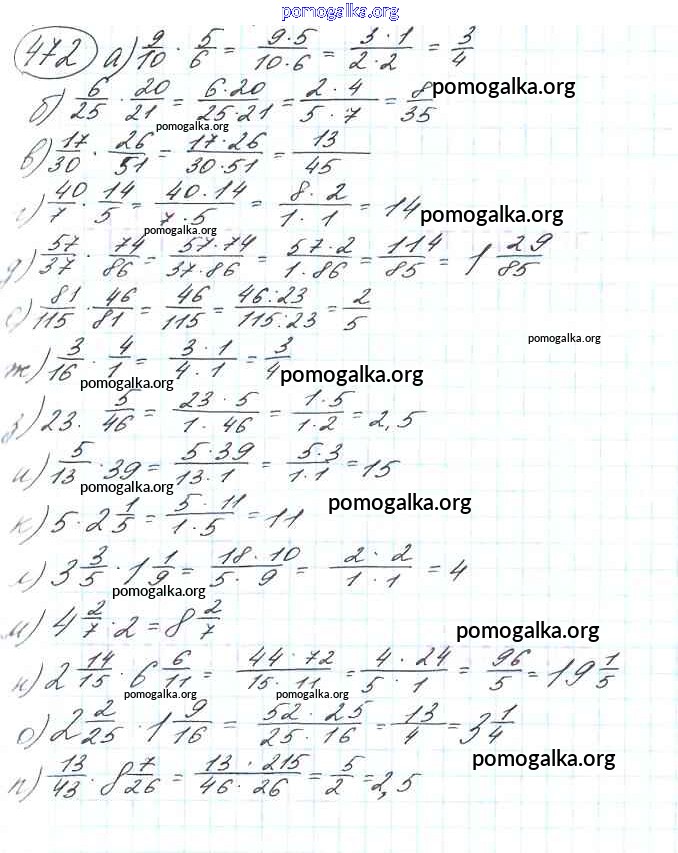 pomogalka.org
472 а) 9/10 · 5/6 = 9·5/10·6 = 3·1/2·2 = 3/4
б) 6/25 · 20/21 = 6·20/25·21 = 2·4/5·7 = 8/35 pomogalka.org
pomogalka.org
в) 17/30 · 26/51 = 17·26/30·51 = 13/45
г) 40/7 · 14/5 = 40·14/7·5 = 8·2/1·1 = 14 pomogalka.org
pomogalka.org
д) 57/37 · 74/86 = 57·74/37·86 = 57·2/1·86 = 114/85 = 1 29/85
е) 81/115 · 46/81 = 46/115 = 46:23/115:23 = 2/5
pomogalka.org
ж) 3/16 · 4/1 = 3·1/4·1 = 3/4
pomogalka.org pomogalka.org
з) 23 · 5/46 = 23·5/1·46 = 1·5/1·2 = 2,5
и) 5/13 · 39 = 5·39/13·1 = 5·3/1·1 = 15
pomogalka.org
к) 5 · 2 1/5 = 5·11/1·5 = 11 pomogalka.org
л) 3 3/5 · 1 1/9 = 18·10/5·9 = 2·2/1·1 = 4
pomogalka.org
м) 4 2/7 · 2 = 8 2/7 pomogalka.org
н) 2 14/15 · 6 6/11 = 44·72/15·11 = 4·24/5·1 = 96/5 = 19 1/5
pomogalka.org pomogalka.org
о) 2 2/25 · 1 9/16 = 52·25/25·16 = 13/4 = 3 1/4
pomogalka.org
п) 13/43 · 8 7/26 = 13·215/46·26 = 5/2 = 2,5